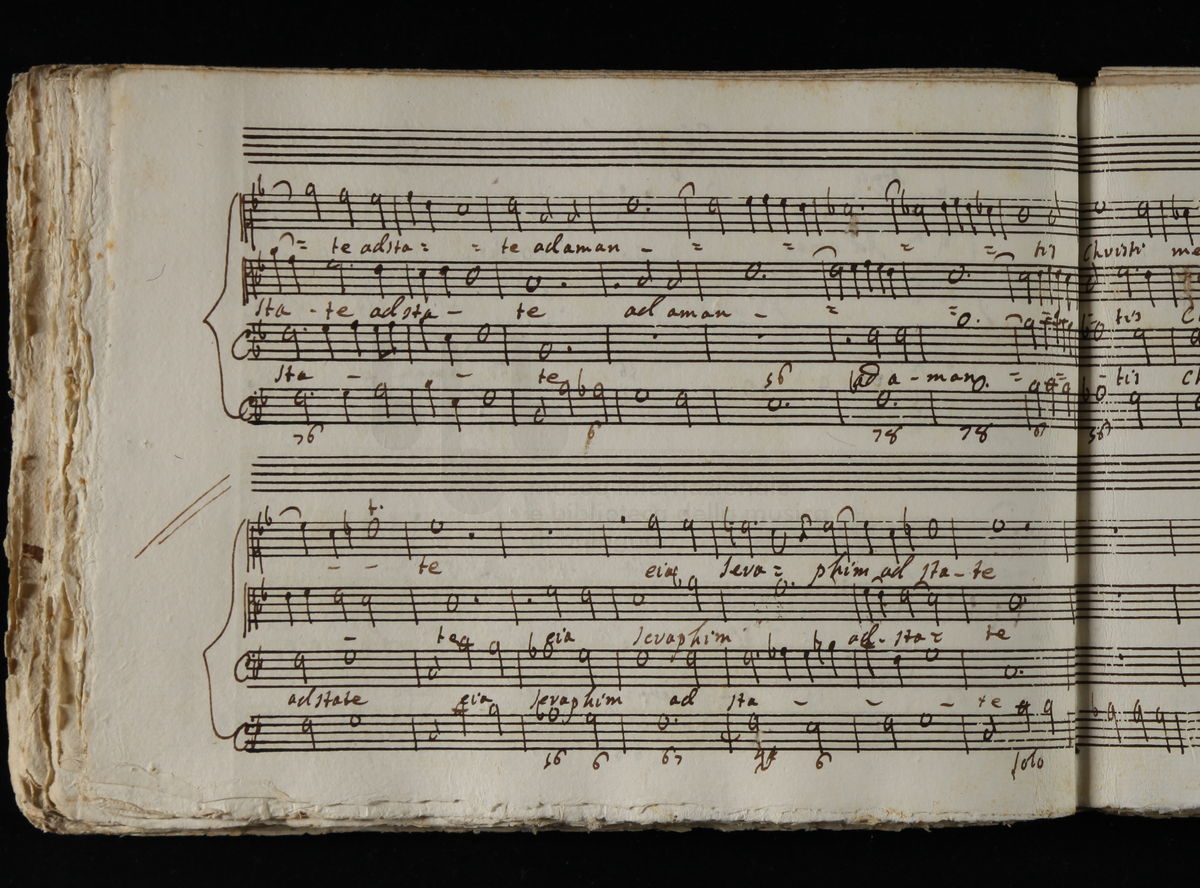 = te adsta = = te ad aman - = = = = tis Christi me
sta - te adsta - te ad aman - = = - tis C
sta - - te ad a - man = = - tis ch
56
76 6 78 78 67 56
t.
- - te eia, sera = phim ad sta - te
- te eia seraphim ad - sta = te
adstate eia seraphim ad sta - - - te
56 6 67 6
solo